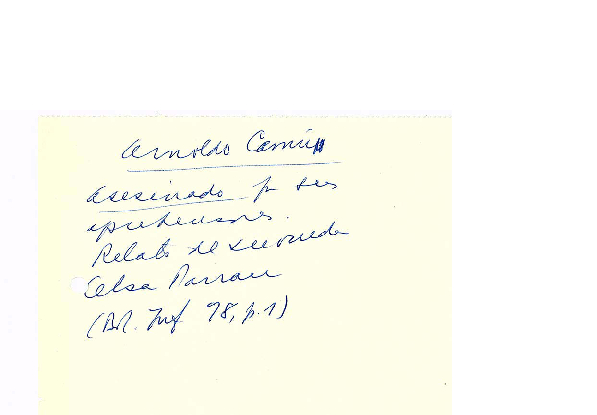 Arnoldo Camú
asesinado p sus
aprehensores.
Relato de su viuda
Celsa Parrau
(Bol. Inf 98, p.1)